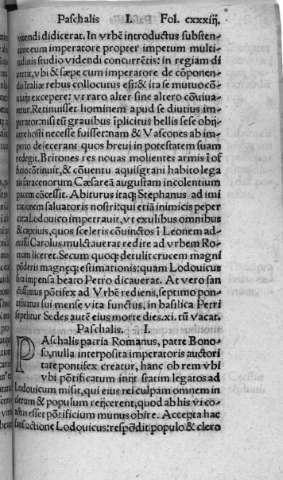 Paschalis I. Fol. cxxxiij.
videndi didicerat. In vrbē introductus substen-
tureum imperatore propter impetum multi-
studio videndi concurrētis: in regiam di
vbi & sæpe cum imperatore de cōponen-
Italiæ rebus collocutus est: & ita se mutuo cō-
excepere: vt raro alter sine altero cōuiua-
retur. Retinuisset hominem apud se diutius im-
perator: nisi tū grauibus īplicitus bellis sese obij-
cere hosti necesse fuisset: nam & Vascones ab im-
perio desecerant quos breui in potestatem suam
redegit. Britones res nouas molientes armis
cōtinuit, & cōuentu aquisgrani habito lega
saracenorum Cæsareā augustam incolentium
pacem cōcessit. Abiturus itaq; Stephanus ad imi
tationem saluatoris nostri qui etiā inimicis peper
cit a Lodouico imperrauit, vt exulibus omnibus
& captiuis, quos sceleris cōuinctos ī Leonem ad-
missi Carolus mulctauerat redire ad vrbem Ro-
mam liceret. Secum quoq; detulit crucem magni
pōderis magneq; estimationis: quam Lodouicus
sua impensa beato Petro dicauerat. At vero san
ctissimus pōtifex ad Vrbē rediens, septimo pon-
tificatus sui mense vita functus, in basilica Petri
sepelitur Sedes autē eius morte dies. xi. tū vacat.
Paschalis. I.
PAschalis patria Romanus, patre Bono-
so, nulla interposita imperatoris auctori
tate pontifex creatur, hanc ob rem vbi
vbi pōtificatum iniit statim legatos ad
Lodouicum misit, qui eius rei culpam omnem in
clerum & populum reijcerent, quod ab his vi co-
actus esset pōtificium munus obire. Accepta hac
satisfactione Lodouicus: respōdit populo & clero